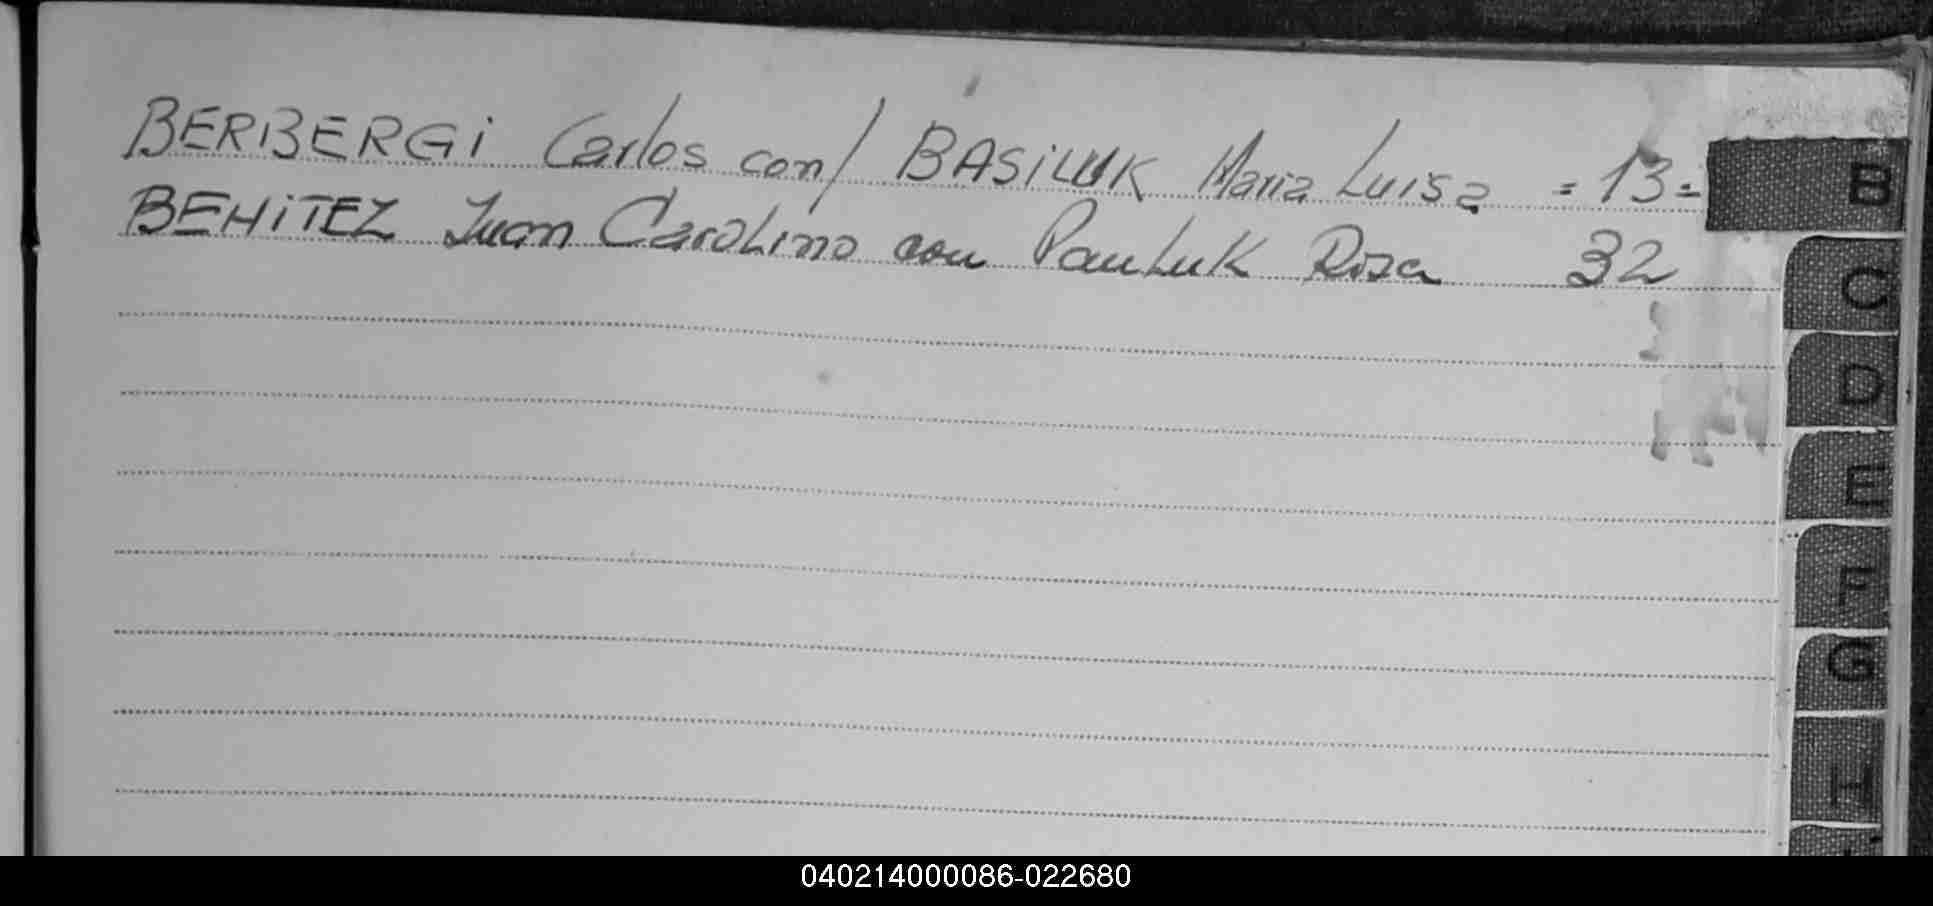 BERBERGi Carlos con/ BASiLUK Maria Luisa = 13 =
BEHiTEZ Juan Carolino con Pauluk Rosa 32
B
C
D
E
F
G
H
040214000086-022680